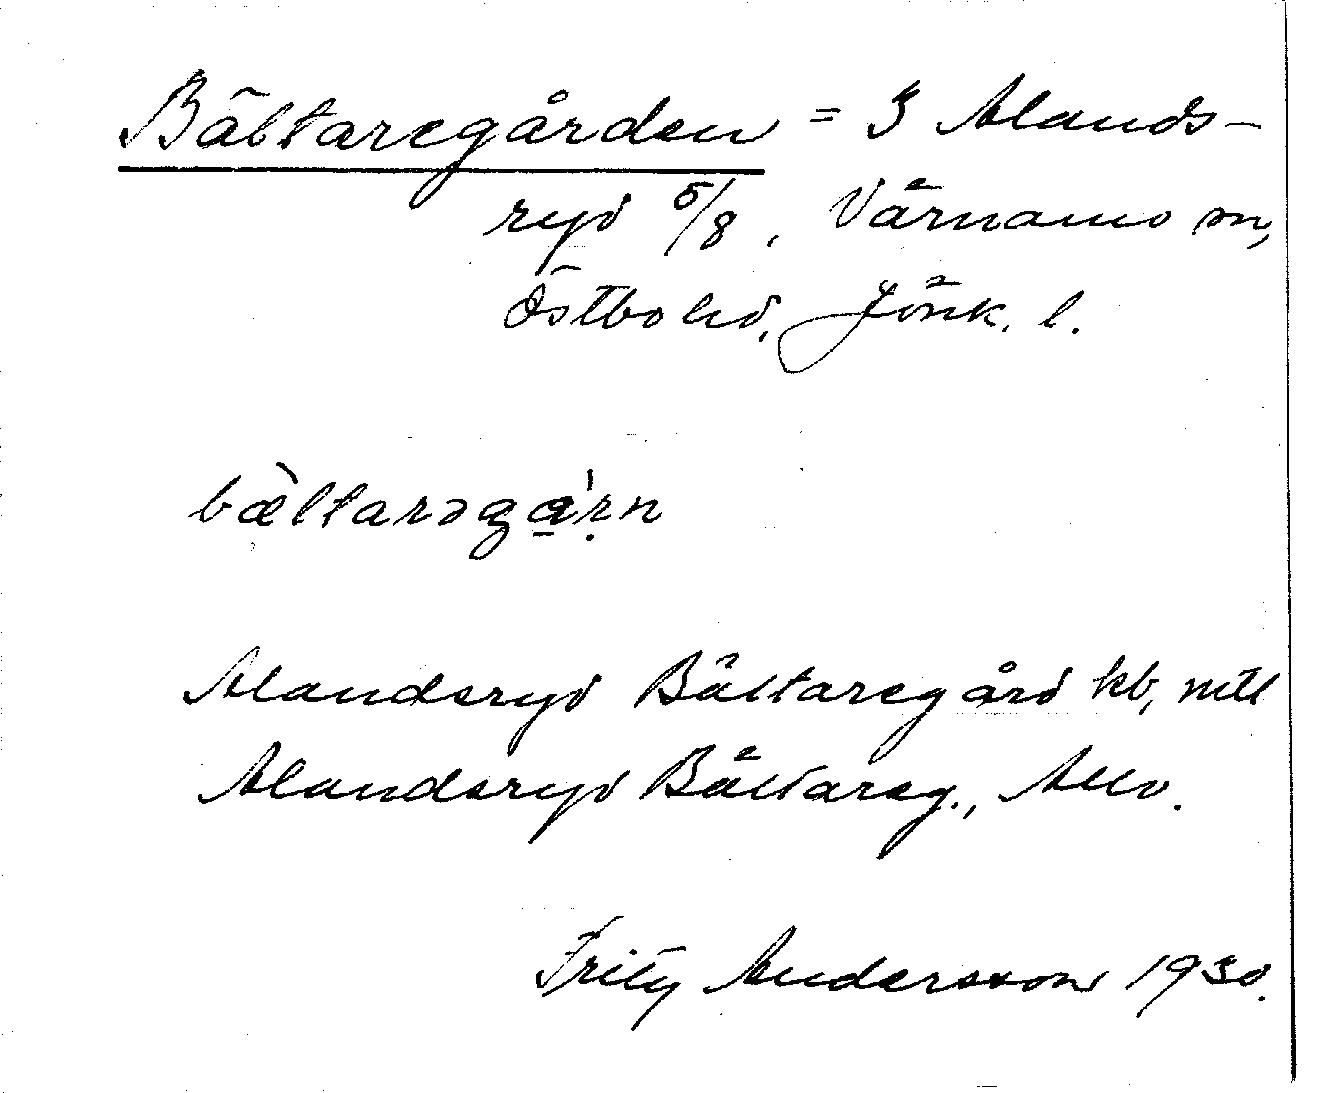 Bältaregården = 3 Alands-
ryd 5/8, Värnamo sn,
Östbo hd, Jönk. l.
bæ̀ltarəgá̱ṛn
Alandsryd Bältaregård kb, mtl
Alandsryd Bältareg.,
Fritz Andersson 1930.